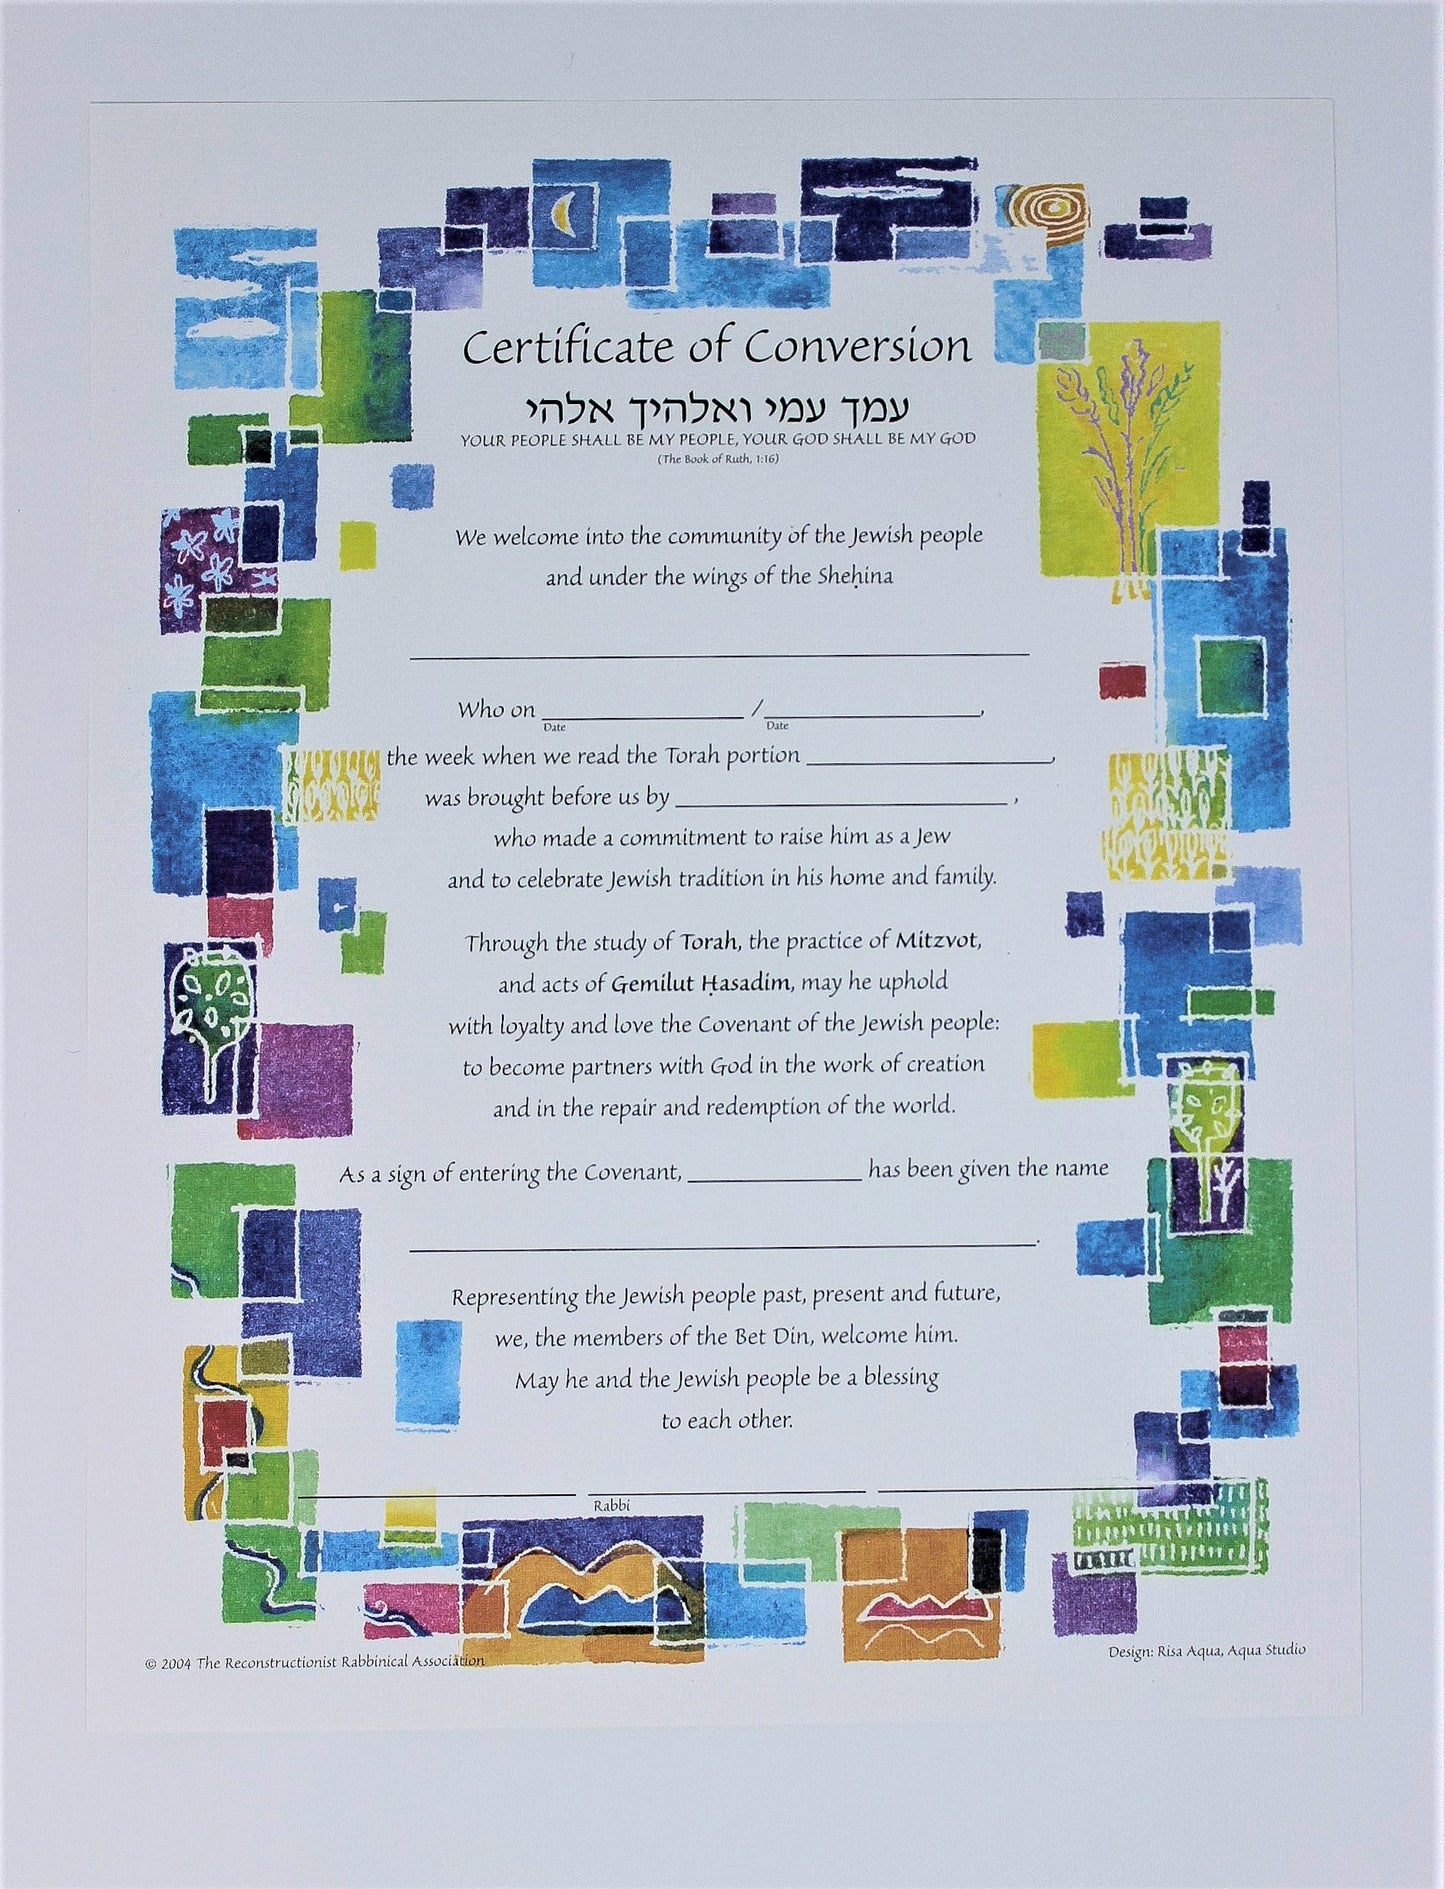 Certificate of Conversion
עמך עמי ואלהיך אלהי
YOUR PEOPLE SHALL BE MY PEOPLE, YOUR GOD SHALL BE MY GOD
(The Book of Ruth, 1:16)
We welcome into the community of the Jewish people
and under the wings of the Sheḥina
Who on / ,
Date Date
the week when we read the Torah portion ,
was brought before us by ,
who made a commitment to raise him as a Jew
and to celebrate Jewish tradition in his home and family.
Through the study of Torah, the practice of Mitzvot,
and acts of Gemilut Ḥasadim, may he uphold
with loyalty and love the Covenant of the Jewish people:
to become partners with God in the work of creation
and in the repair and redemption of the world.
As a sign of entering the Covenant, has been given the name
.
Representing the Jewish people past, present and future,
we, the members of the Bet Din, welcome him.
May he and the Jewish people be a blessing
to each other.
Rabbi
© 2004 The Reconstructionist Rabbinical Association
Design: Risa Aqua, Aqua Studio